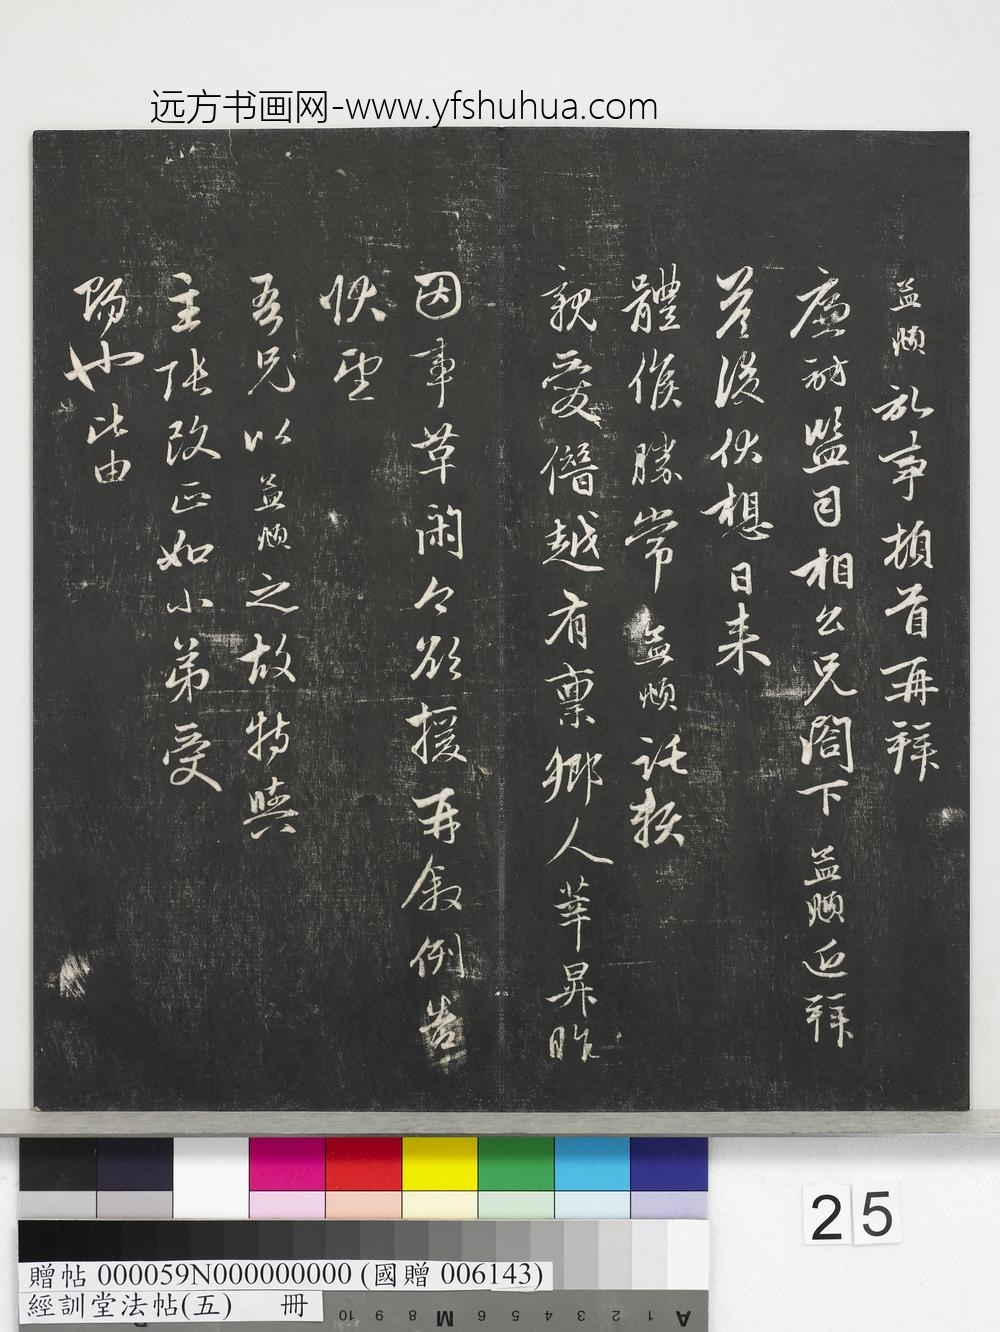 远方书画网-www.yfshuhua.com
益順 事頓首再拜
廉訪監司相公兄閤下益順近拜
答後伏想日來
體候勝常益順託賴
親愛僭越有稟鄉人華昇昨
因事革閑今欲援再敘例告
伏望
吾兄以益順之故特與
主張改正如小弟受
賜也此由
25
贈帖 000059N000000000 (國贈 006143)
經訓堂法帖(五) 冊
10 9 8 M 6 5 4 3 2 1 A